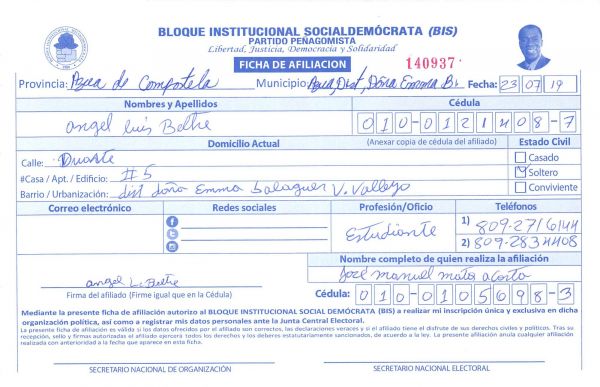 BLOQUE INSTITUCIONAL SOCIALDEMÓCRATA (BIS)
PARTIDO PEÑAGOMISTA
Libertad, Justicia, Democracia y Solidaridad
FICHA DE AFILIACION 140937
Provincia: Azua de Compostela Municipio: Azua, Dist, Doña Emma B. Fecha: 23 07 19
Nombres y Apellidos Cédula
angel luis Beltre 010-0121408-7
Domicilio Actual (Anexar copia de cédula del afiliado) Estado Civil
Calle: Duarte Casado
#Casa / Apt. / Edificio: #5 Soltero
Barrio / Urbanización: dist doña Emma balaguer V. Vallejo Conviviente
Correo electrónico Redes sociales Profesión/Oficio Teléfonos
Estudiante 1) 809-2716144
2) 809-2834408
Nombre completo de quien realiza la afiliación
angel L. Beltre José manuel mata acosta
Firma del afiliado (Firme igual que en la Cédula) Cédula: 010-0105698-3
Mediante la presente ficha de afiliación autorizo al BLOQUE INSTITUCIONAL SOCIAL DEMÓCRATA (BIS) a realizar mi inscripción única y exclusiva en dicha
organización política, así como a registrar mis datos personales ante la Junta Central Electoral.
La presente ficha de afiliación es válida si los datos ofrecidos por el afiliado son correctos, las declaraciones veraces y si el afiliado tiene el disfrute de sus derechos civiles y políticos. Tras su
recepción, sello y firmas autorizadas el afiliado ejercerá todos los derechos y los deberes estatutariamente sancionados, de acuerdo a la ley. La presente afiliación anula cualquier afiliación
realizada con anterioridad a la fecha que aparece en esta ficha.
SECRETARIO NACIONAL DE ORGANIZACIÓN SECRETARIO NACIONAL ELECTORAL